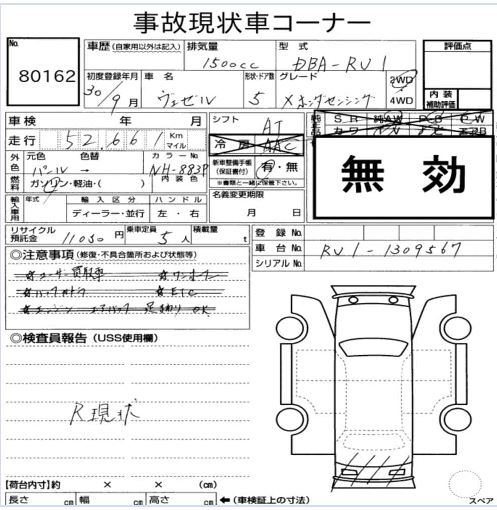 事故現状車コーナー
No.
80162
車歴 (自家用以外は記入) 排気量 型式
1500cc DBA-RU1
評価点
初度登録年月 車名 形状・ドア数 グレード
30/9月 ヴェゼル 5 X ホンダセンシング
2WD
4WD
内装
補助評価
車検 年 月 シフト AT
走行 52,661 Km マイル
冷房 AAC
外色 元色 色替 カラーNo.
パール → NH-883P
新車整備手帳 (保証書付) 有・無
※書類と一緒に保管下さい。
無効
燃料 ガソリン・軽油・( ) 内装色
名義変更期限
月 日
輸入車用 年式 輸入区分 ハンドル
ディーラー・並行 左・右
リサイクル預託金 11050 円 乗車定員 5人 積載量 t
登録No.
車台No. RU1-1309567
シリアルNo.
◎注意事項 (修復・不具合箇所および状態等)
☆ユーザー買取車 ☆ワンオーナー
☆バックカメラ ☆ETC
☆エンジン エアバック 足廻り OK
◎検査員報告 (USS使用欄)
R現状
【荷台内寸】約 × × (cm)
長さ cm 幅 cm 高さ cm ←(車検証上の寸法)
スペア